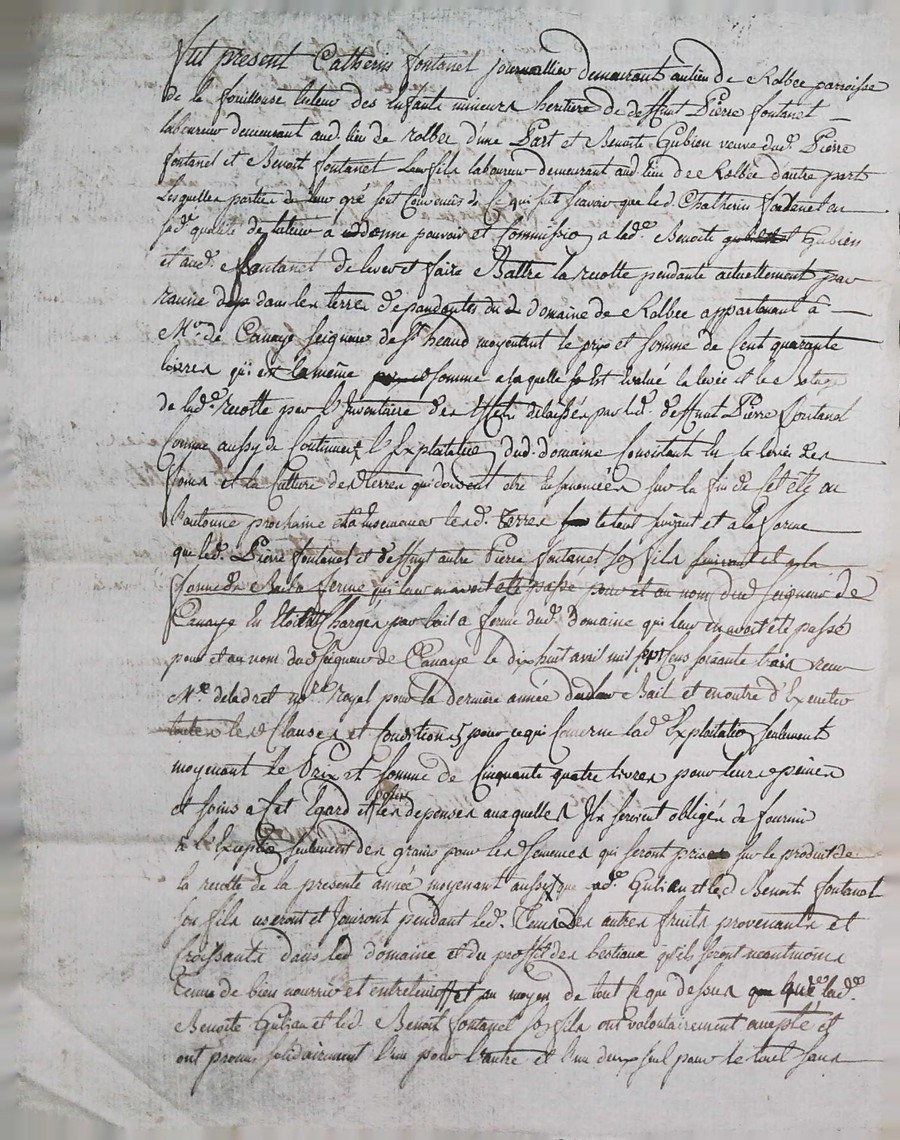 fut present Catherin fontanel journallier demeurant au lieu de Rolbee parroisse
de la fouillouse tuteur des enfants mineurs heritiers de deffunt Pierre fontanet
laboureur demeurant aud. lieu de rolbee d'une Part et Benoite Gubien veuve dud. Pierre
fontanel et Benoit fontanet son fils laboureur demeurant aud. lieu de Rolbee d'autre part
Lesquelles parties de leur gré sont convenus de ce qui suit scavoir que led. Chatherin fontenel en
sad. qualité de tuteur à donne pouvoir et Commission a lad. Benoite Gubien
et aud. fontanet de lever et faire Battre la recolte pendante actuellement par
racine dans les terres dépendantes du domaine de Rolbee appartenant à
Mr. de Canaye seigneur de St. heand moyentent le prix et somme de Cent quarante
livres qui est la même somme a laquelle a Est Evalué la levée et le
de lad. recolte par l'Inventaire des Effets délaissés par led. deffunt Pierre fontanel
Comme aussy de Continuer l'Exploitation dud. domaine Consistant en la levée des
foins et la Culture des terres qui doivent etre Ensemencées sur la fin de cet été ou
l'automne prochaine et a ensemencer lesd. terres le tout suivant et a la forme
que led. Pierre fontanel et deffunt autre Pierre fontanel son fils suivant et a la
forme de Bail a ferme qui leur en avoit eté passé pour et au nom dud. seigneur de
Canaye En Etoient Chargés par bail a ferme dud. Domaine qui leur en avoit été passé
pour et au nom dud. seigneur de Canaye le dix huit avril mil sept cens soixante trois reçu
Me. deladret nre. Royal pour la derniere année dud. Bail et en outre d'Executer
les Clauses et Conditions pour ce qui Concerne lad. Exploitation seulement
moyenant le Prix et somme de Cinquante quatre livres pour leurs peines
et soins a Cet Egard et pour les depenses auxquelles Ils seront obligés de fournir
à l'Exception seulement des grains pour les semences qui seront prises sur le produit de
la recolte de la presente année moyenant aussy que lad. Gubian et led. Benoit fontanet
son fils useront et Jouiront pendant led. Tems des autres fruits provenants et
Croissants dans led. domaine et du proffit des bestiaux qu'ils seront neantmoins
Tenus de bien nourrir et entretenir et au moyen de tout ce que dessus lad.
Benoite Gubian et led. Benoit fontanel son fils ont volontairement accepté et
ont promis solidairement l'un pour l'autre et l'un deux seul pour le tout sans